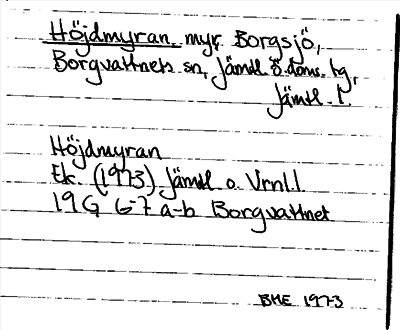 Höjdmyran, myr, Borgsjö,
Borgvattnets sn, Jämtl. ö. doms. tg,
Jämtl. l.
Höjdmyran
Ek. (1973) Jämtl o. Vrnl.l.
19 G 6-7 a-b Borgvattnet
BME 1973